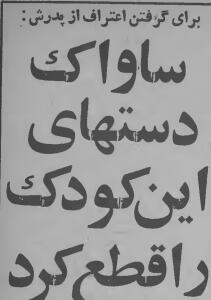 برای گرفتن اعتراف از پدرش:
ساواک
دستهای
این کودک
را قطع کرد